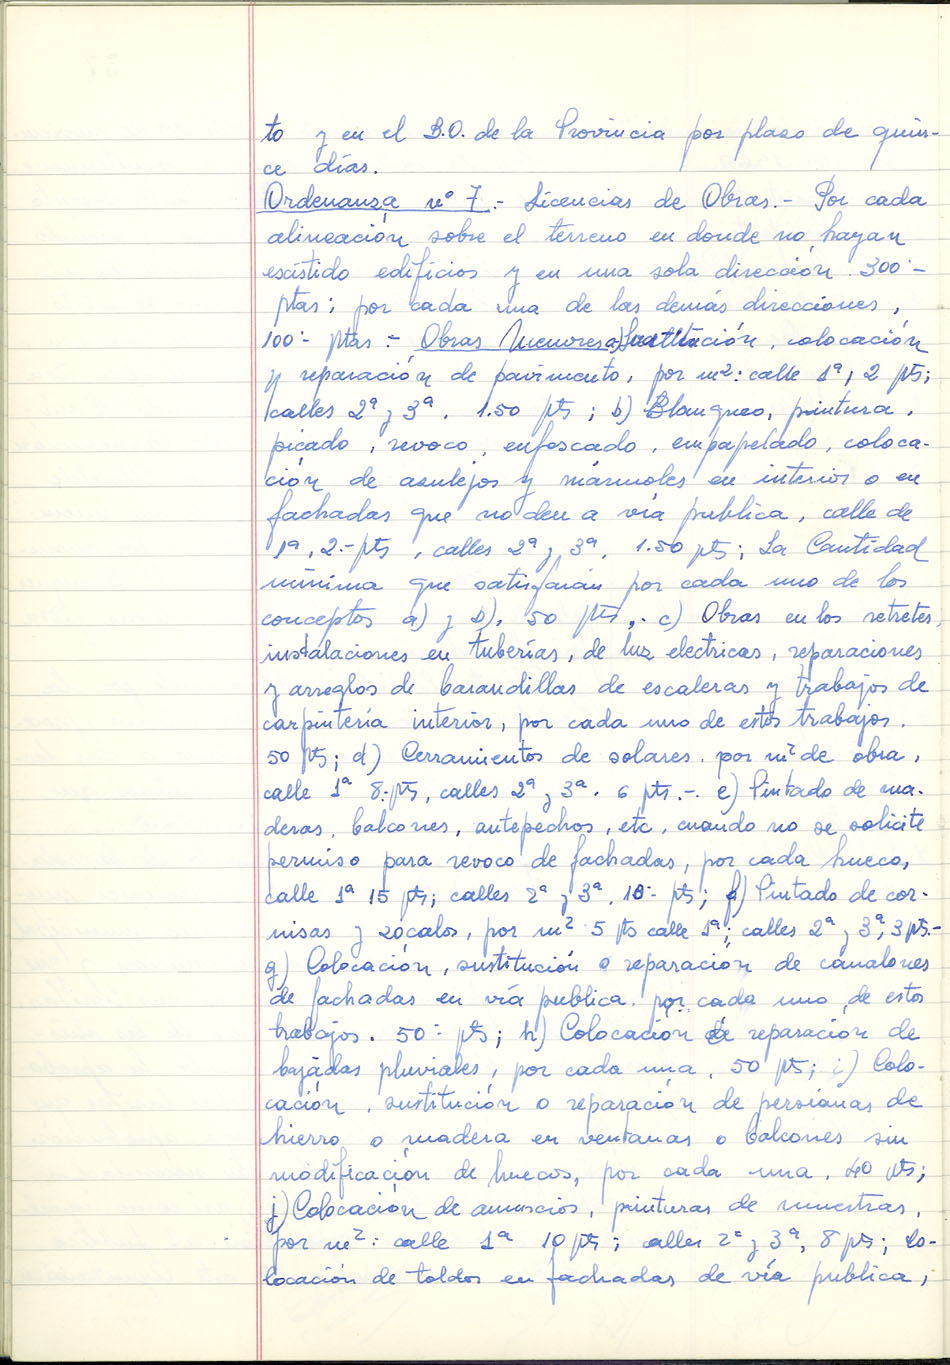 to y en el B.O. de la Provincia por plazo de quin-
ce días.
Ordenanza nº 7.- Licencias de Obras.- Por cada
alineación sobre el terreno en donde no hayan
existido edificios y en una sola dirección 300'-
ptas; por cada una de las demás direcciones,
100'- ptas.- Obras Menores a) Sustitución, colocación
y reparación de pavimento, por m²: calle 1ª, 2 pts;
calles 2ª y 3ª. 1.50 pts; b) Blanqueo, pintura,
picado, revoco, enfoscado, empapelado, coloca-
ción de azulejos y mármoles en interior o en
fachadas que no den a vía publica, calle de
1ª, 2.- pts, calles 2ª y 3ª, 1.50 pts; La Cantidad
mínima que satisfarán por cada uno de los
conceptos a) y b), 50 pts,. c) Obras en los retretes,
instalaciones en tuberías, de luz electricas, reparaciones
y arreglos de barandillas de escaleras y trabajos de
carpintería interior, por cada uno de estos trabajos.
50 pts; d) Cerramientos de solares. por m² de obra,
calle 1ª 8.pts, calles 2ª y 3ª. 6 pts.-. e) Pintado de ma-
deras, balcones, antepechos, etc, cuando no se solicite
permiso para revoco de fachadas, por cada hueco,
calle 1ª 15 pts; calles 2ª y 3ª, 10'- pts; f) Pintado de cor-
nisas y zócalos, por m² 5 pts calle 1ª; calles 2ª y 3ª, 3 pts.-
g) Colocación, sustitución o reparación de canalones
de fachadas en vía publica. por cada uno de estos
trabajos. 50'- pts; h) Colocación de reparación de
bajadas pluviales, por cada una, 50 pts; i) Colo-
cación, sustitución o reparación de persianas de
hierro o madera en ventanas o balcones sin
modificación de huecos, por cada una, 40 pts;
j) Colocación de anuncios, pinturas de muestras,
por m²: calle 1ª 10 pts; calles 2ª y 3ª, 8 pts; Co-
locación de toldos en fachadas de vía publica,